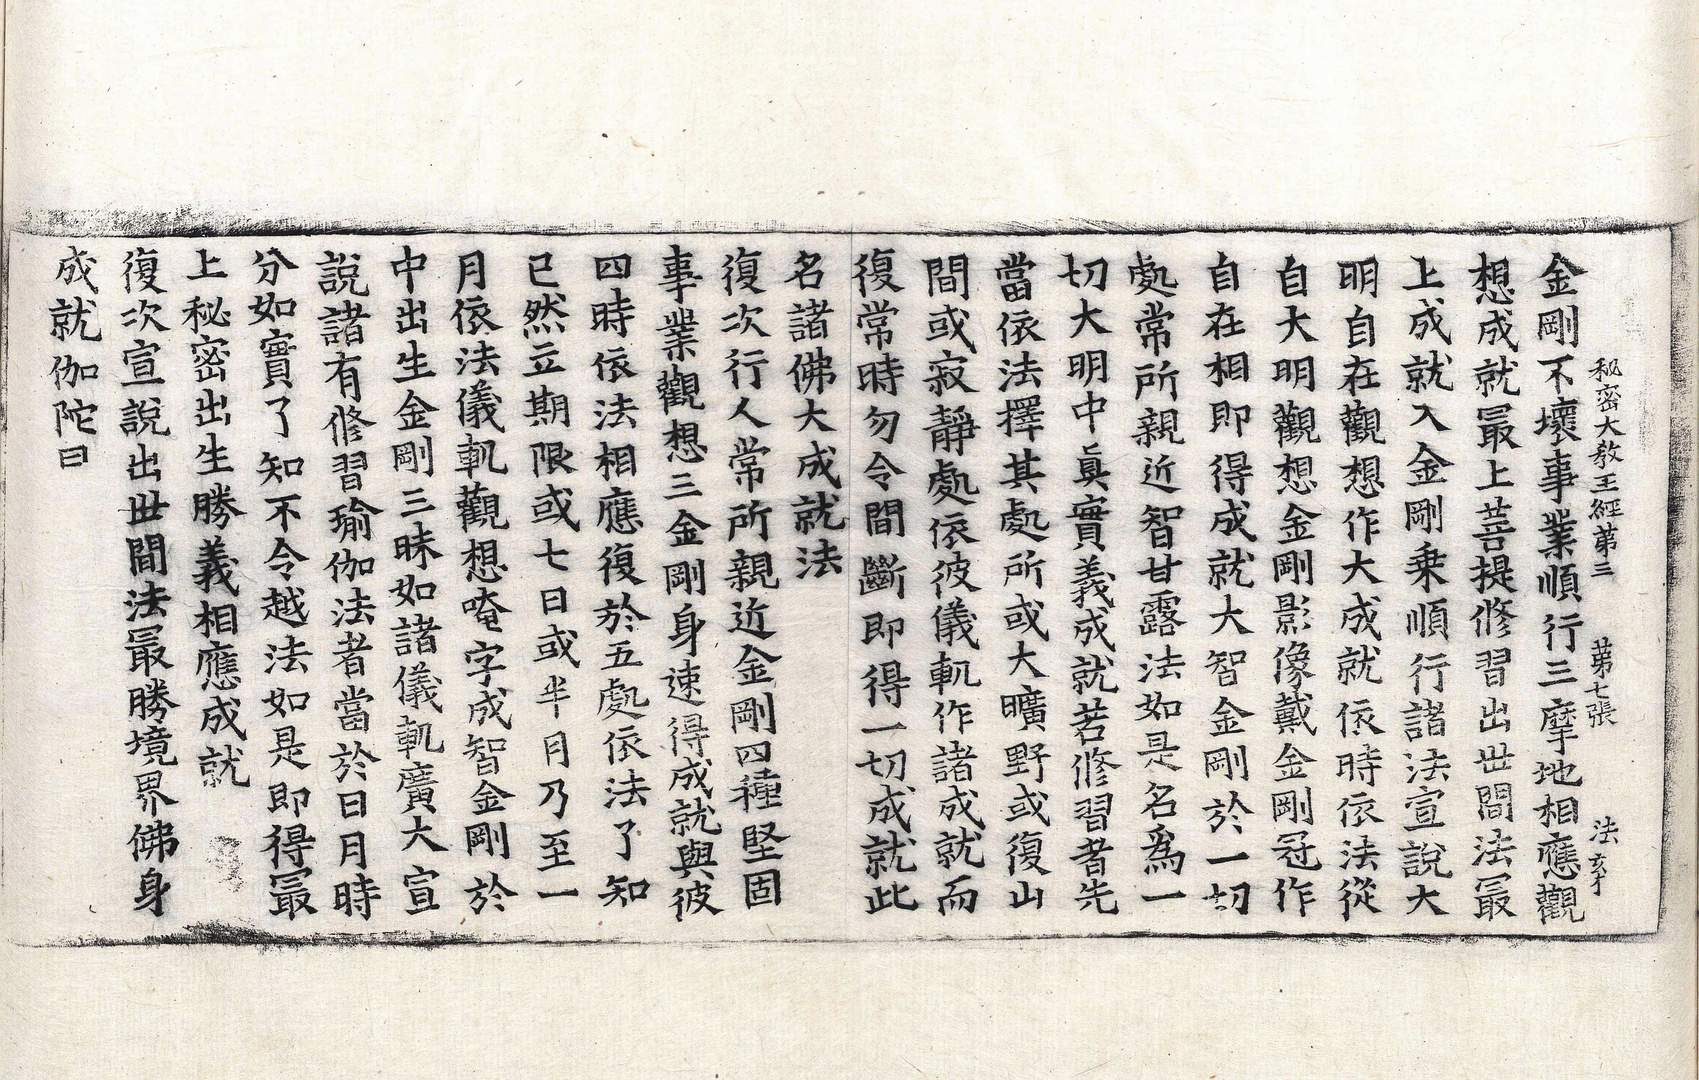 秘密大教王經第三　第七張　法
金剛不壞事業順行三摩地相應觀
想成就最上菩提修習出世間法最
上成就入金剛乗順行諸法宣說大
明自在觀想作大成就依時依法從
自大明觀想金剛影像戴金剛冠作
自在相即得成就大智金剛於一切
處常所親近智甘露法如是名爲一
切大明中眞實義成就若修習者先
當依法擇其處所或大曠野或復山
間或寂靜處依彼儀軌作諸成就而
復常時勿令間斷即得一切成就此
名諸佛大成就法
復次行人常所親近金剛四種堅固
事業觀想三金剛身速得成就與彼
四時依法相應復於五處依法了知
已然立期限或七日或半月乃至一
月依法儀軌觀想唵字成智金剛於
中出生金剛三昧如諸儀軌廣大宣
說諸有修習瑜伽法者當於日月時
分如實了知不令越法如是即得最
上秘密出生勝義相應成就
復次宣說出世間法最勝境界佛身
成就伽陀曰